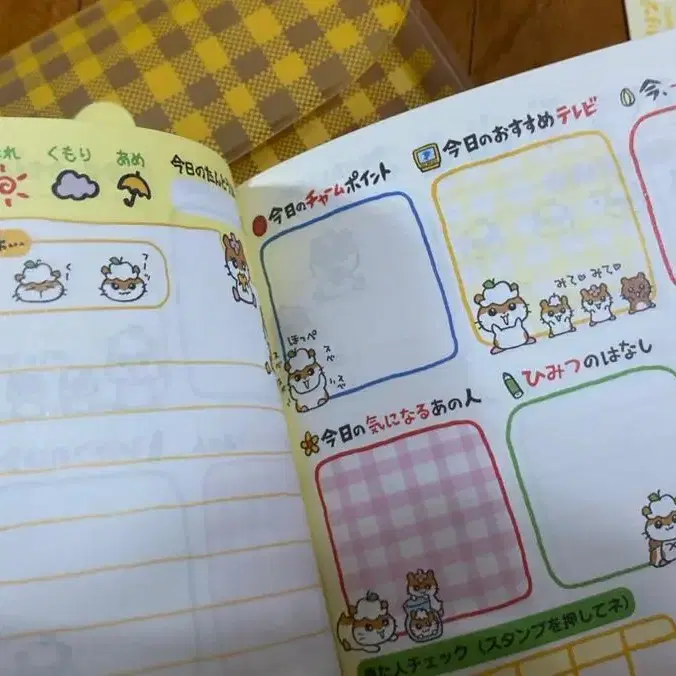 くもり
あめ
今日の
くー
ほっぺ
スベ
スベ
今日のチャームポイント
今日のおすすめテレビ
みて♡みて♡
今、
今日の気になるあの人
ひみつのはなし
た人チェック（スタンプを押してネ）